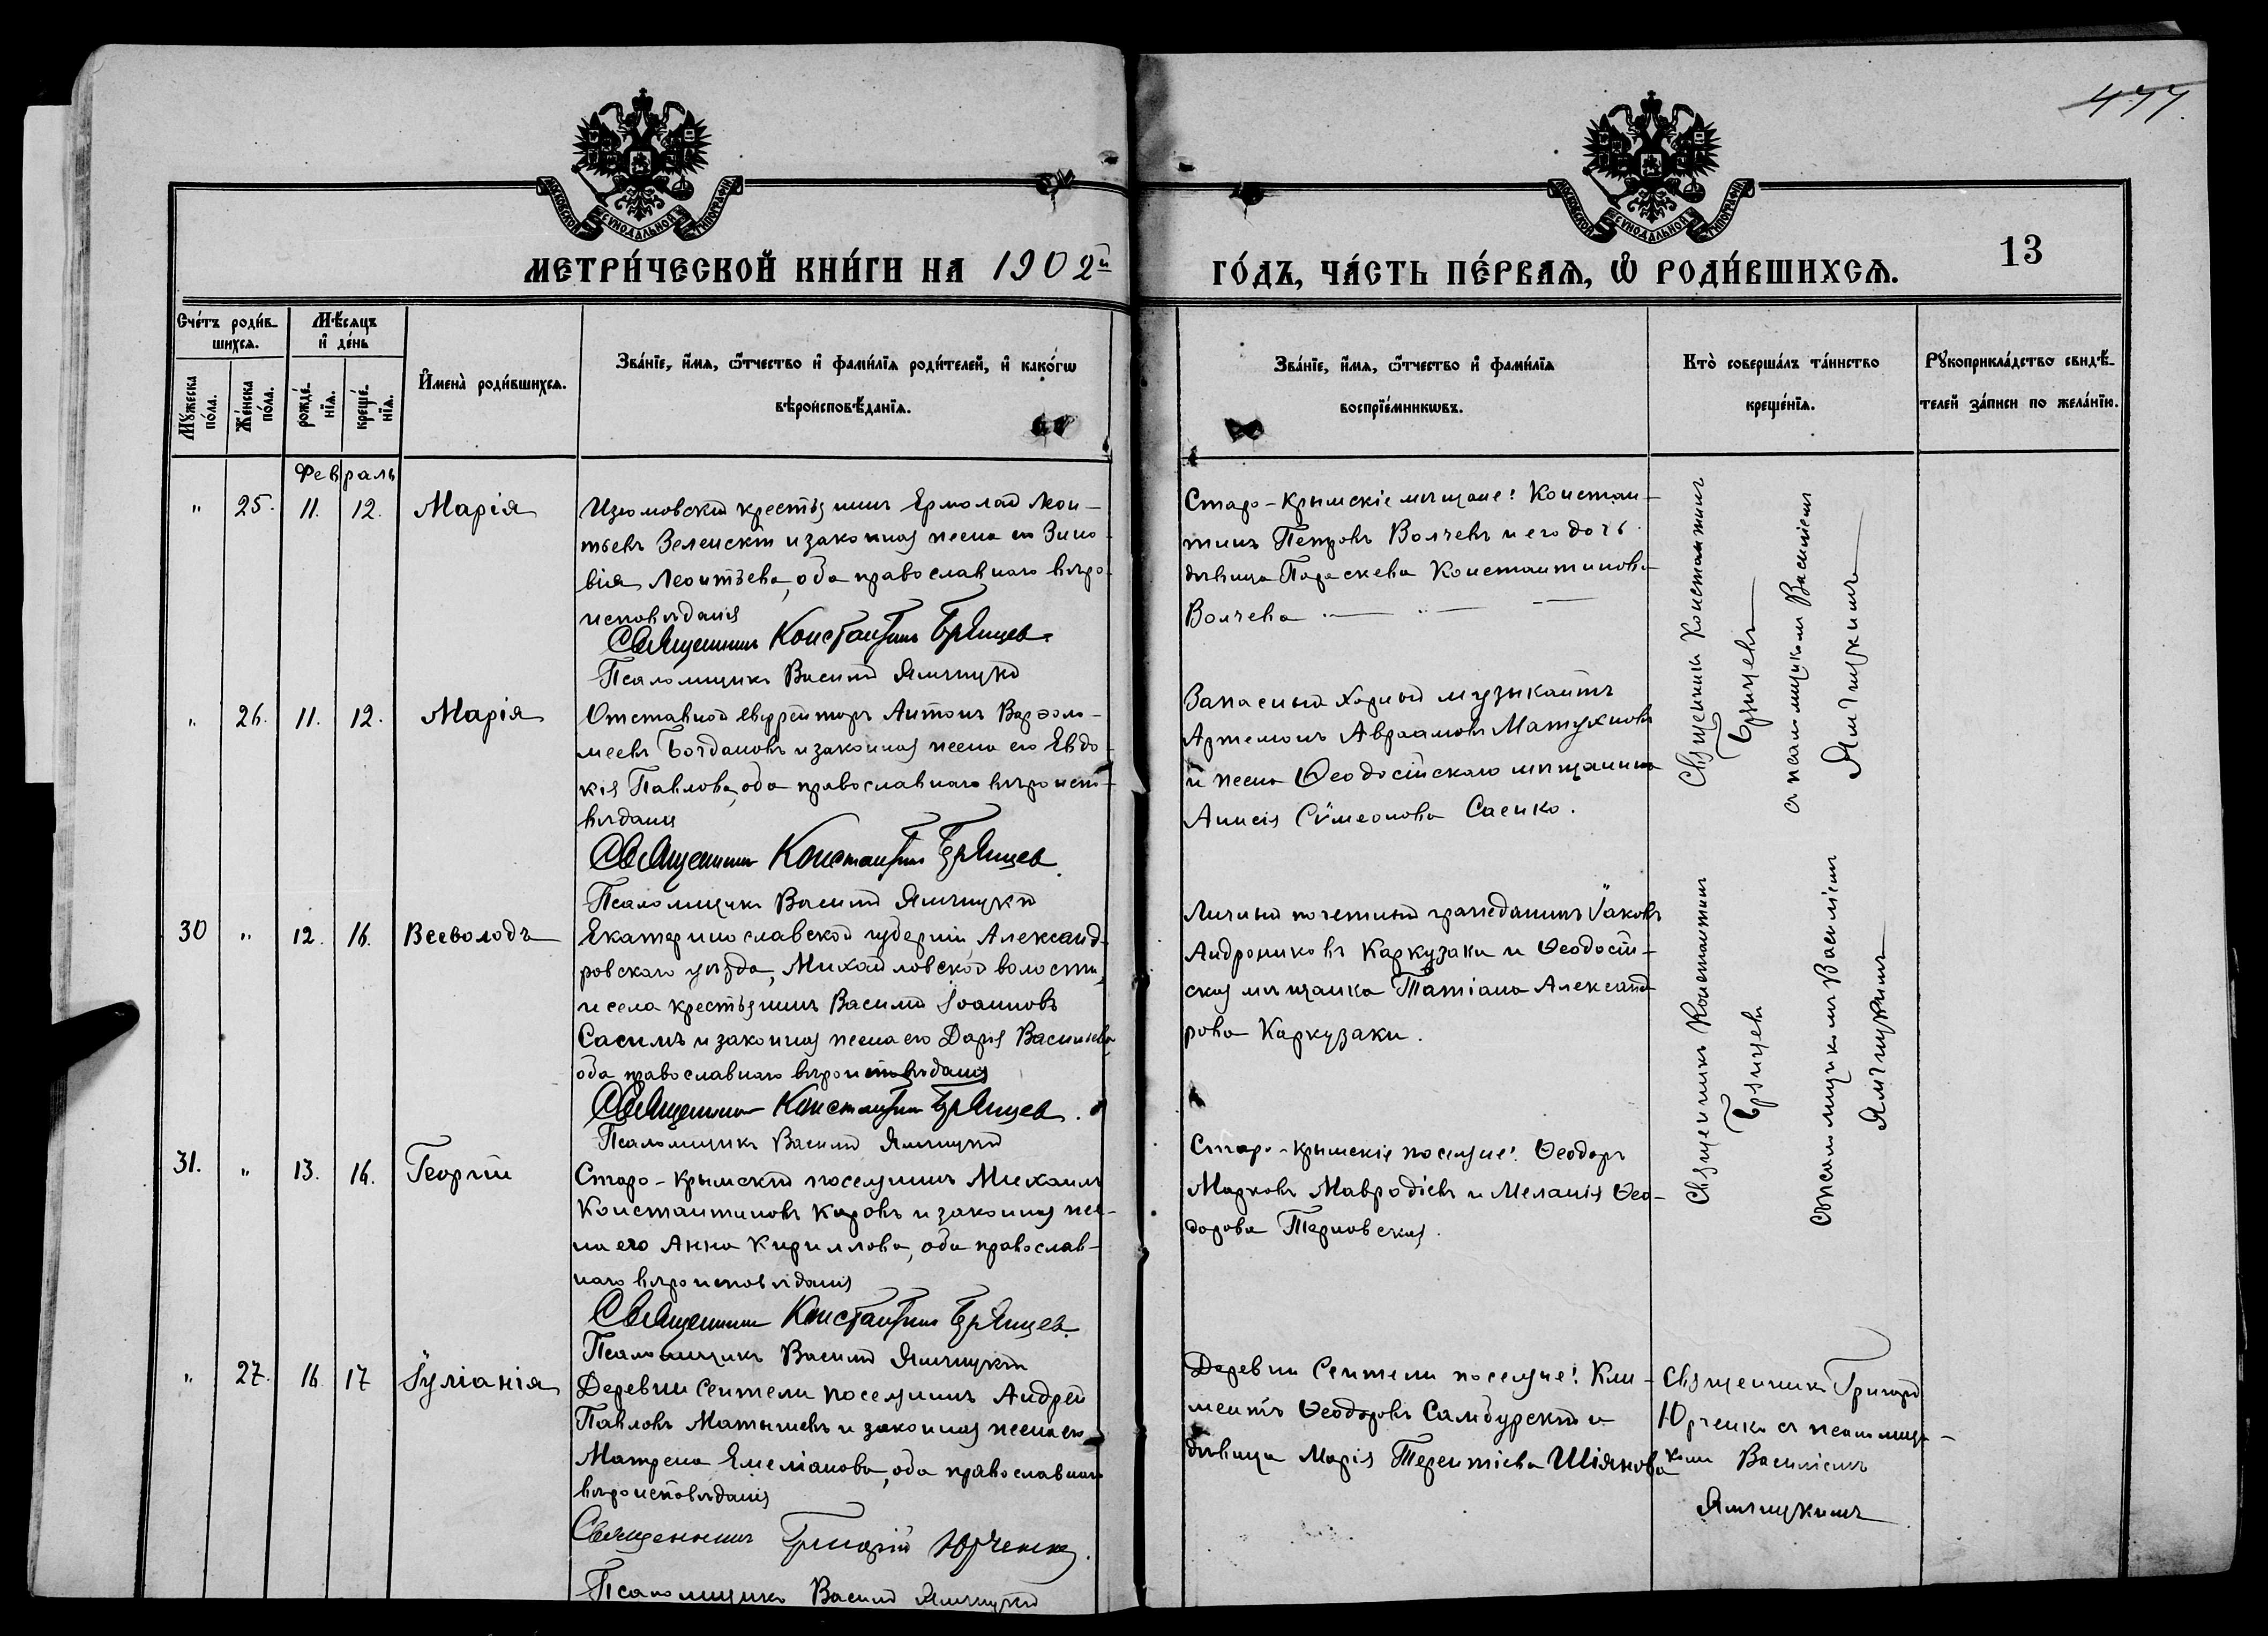 477.
МОСКОВСКОЙ СѴНОДАЛЬНОЙ ТИПОГРАФІИ
МОСКОВСКОЙ СѴНОДАЛЬНОЙ ТИПОГРАФІИ
МЕТРИ́ЧЕСКОЙ КНИ́ГИ НА 1902й
ГО́ДЪ, ЧА́СТЬ ПЕ́РВАѦ, Ѿ РОДИ́ВШИХСѦ.
13
Сче́тъ роди́в-
шихсѧ.
Мѣ́сѧцъ
и҆ де́нь
Мꙋ́жеска
по́ла.
Же́нска
по́ла.
рожде́-
нїѧ.
креще́-
нїѧ.
И҆мена̀ роди́вшихсѧ.
Зва́нїе, и҆́мѧ, ѻ҆́тчество и҆ фами́лїѧ роди́телей, и҆ како́гѡ
вѣроисповѣ́данїѧ.
Зва́нїе, и҆́мѧ, ѻ҆́тчество и҆ фами́лїѧ
воспрїе́мникѡвъ.
Кто̀ соверша́лъ та́инство
креще́нїѧ.
Рꙋкоприкла́дство свидѣ́-
телей за́писи по жела́нїю.
Февраль
" 25. 11. 12. Марія
Изюмовскій крестьянинъ Ермолай Леон-
тьевъ Зеленскій и законная жена его Зино-
вія Леонтьева, оба православнаго вѣро-
исповѣданія
Священникъ Константинъ Брянцев
Псаломщикъ Василій Ямчицкій
Старо-Крымскіе мѣщане: Констан-
тинъ Петровъ Волчевъ и его дочь
дѣвица Параскева Константинова
Волчева
Священникъ Константинъ
Брянцевъ
съ псаломщикомъ Василіемъ
" 26. 11. 12. Марія
Отставной ефрейторъ Антонъ Варѳоло-
меевъ Богдановъ и законная жена его Евдо-
кія Павлова, оба православнаго вѣроиспо-
вѣданія
Священникъ Константинъ Брянцев.
Псаломщикъ Василій
Запасный хорный музыкантъ
Артемонъ Авраамовъ Матухновъ
и жена Ѳеодосійскаго мѣщанина
Анисія Сѵмеонова Саенко.
30 " 12. 16. Всеволодъ
Екатеринославской губерніи, Александ-
ровскаго уѣзда, Михайловской волости,
и села крестьянинъ Василій Іоанновъ
Сасимъ и законная жена его Дарія Васильева
оба православнаго вѣроисповѣданія
Священникъ Константинъ Брянцев.
Псаломщикъ Василій
Личный почетный гражданинъ Іаковъ
Андрониковъ Каркузаки и Ѳеодосій-
ская мѣщанка Татіана Александ-
рова Каркузаки.
Священникъ Константинъ
Брянцевъ
съ псаломщикомъ Василіемъ
31. " 13. 16. Георгій
Старо-Крымскій поселянинъ Михаилъ
Константиновъ Каровъ и законная же-
на его Анна Кириллова, оба православ-
наго вѣроисповѣданія
Священникъ Константинъ Брянцев.
Псаломщикъ Василій
Старо-Крымскіе поселяне: Ѳеодоръ
Марковъ Мавродіевъ и Меланія Ѳео-
дорова Терновская.
" 27. 16 17 Іуліанія
Деревни Сеители поселянинъ Андрей
Павловъ Матышевъ и законная жена его
Матрена Емеліанова, оба православнаго
вѣроисповѣданія
Священникъ Григорій Юрченко.
Псаломщикъ Василій
Деревни Сеители поселяне: Кли-
ментъ Ѳеодоровъ Самбурскій и
дѣвица Марія Терентіева Шіянова
Священникъ Григорій
Юрченко съ псаломщи-
комъ Василіемъ